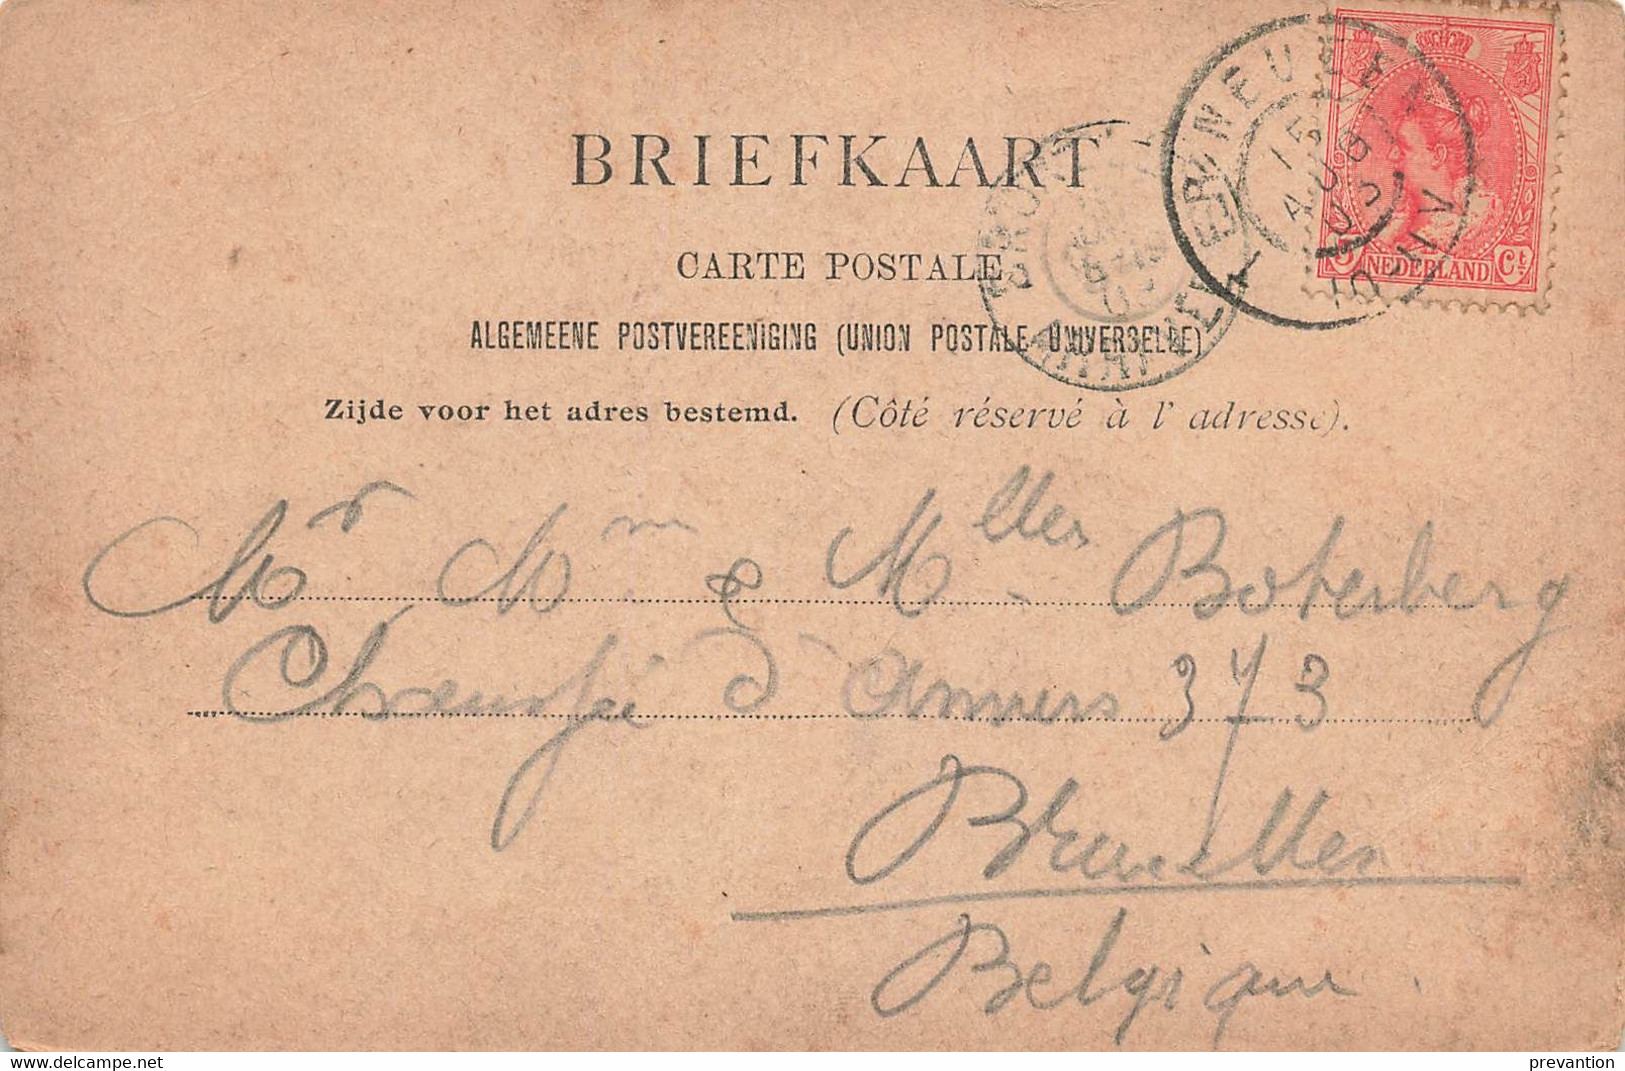 BRIEFKAART
CARTE POSTALE
ALGEMEENE POSTVEREENIGING (UNION POSTALE UNIVERSELLE)
Zijde voor het adres bestemd. (Côté réservé à l' adresse).
5 NEDERLAND Ct.
15 AUG 03
ARRIVEE
Mr Mm & Mlles Boterberg
Chaussée d'Anvers 373
Bruxelles
Belgique.
delcampe.net
prevantion